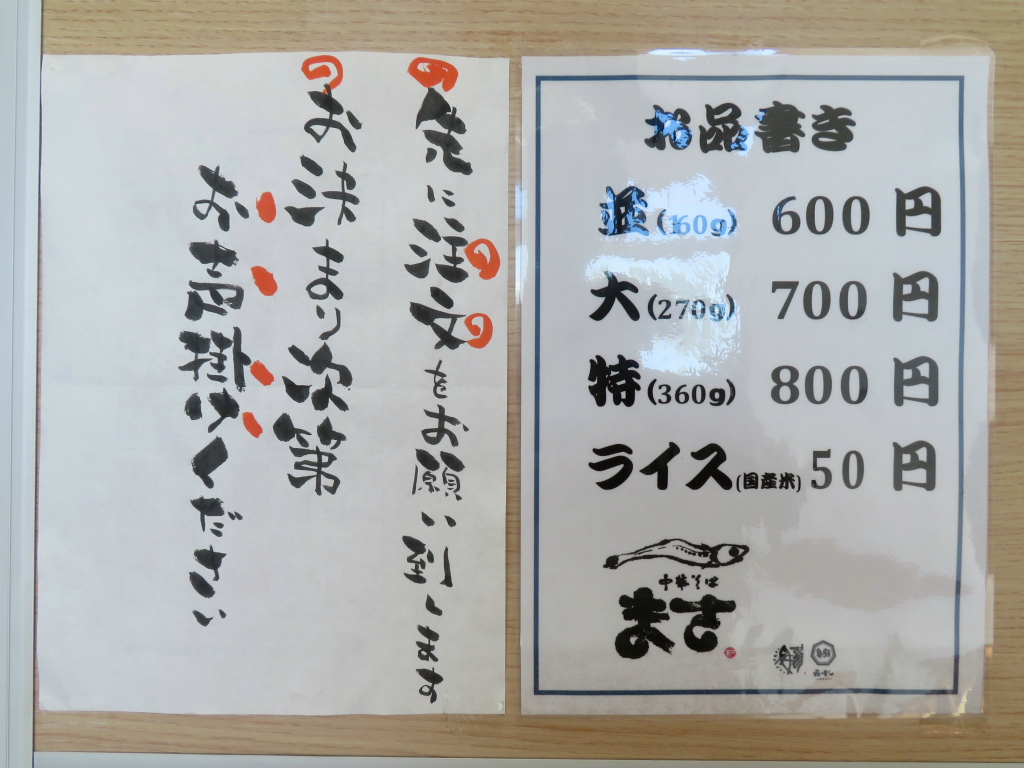 先に注文をお願い到します
お決まり次第
お声掛けください
お品書き
並(160g) 600円
大(270g) 700円
特(360g) 800円
ライス(国産米) 50円
中華そば
まさ